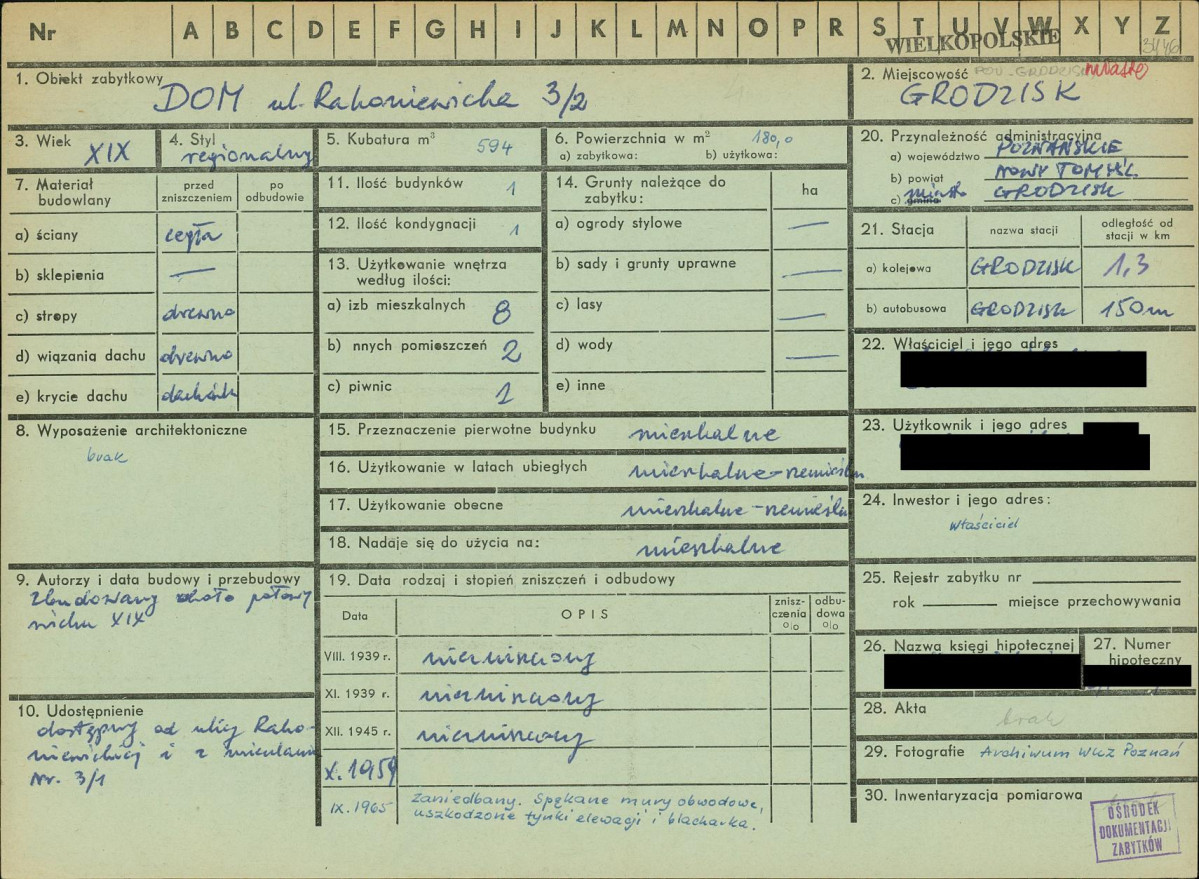 Nr A B C D E F G H I J K L M N O P R S T U V W X Y Z
WIELKOPOLSKIE
3446
1. Obiekt zabytkowy
DOM ul. Rakoniewicka 3/2
2. Miejscowość POW. GRODZISK miasto
GRODZISK
3. Wiek XIX
4. Styl regionalny
5. Kubatura m³ 594
6. Powierzchnia w m² 180,0
a) zabytkowa: b) użytkowa:
20. Przynależność administracyjna
a) województwo POZNAŃSKIE
b) powiat NOWY TOMYŚL
c) gmina miasto GRODZISK
7. Materiał budowlany
przed zniszczeniem
po odbudowie
a) ściany cegła
b) sklepienia —
c) stropy drewno
d) wiązania dachu drewno
e) krycie dachu dachówka
11. Ilość budynków 1
12. Ilość kondygnacji 1
13. Użytkowanie wnętrza według ilości:
a) izb mieszkalnych 8
b) nnych pomieszczeń 2
c) piwnic 1
14. Grunty należące do zabytku:
ha
a) ogrody stylowe —
b) sady i grunty uprawne —
c) lasy —
d) wody —
e) inne
21. Stacja
nazwa stacji
odległość od stacji w km
a) kolejowa GRODZISK 1,3
b) autobusowa GRODZISK 150m
22. Właściciel i jego adres
8. Wyposażenie architektoniczne
brak
15. Przeznaczenie pierwotne budynku mieszkalne
16. Użytkowanie w latach ubiegłych mieszkalne-rzemieśln
17. Użytkowanie obecne mieszkalne-rzemieśln
18. Nadaje się do użycia na: mieszkalne
23. Użytkownik i jego adres
24. Inwestor i jego adres:
właściciel
9. Autorzy i data budowy i przebudowy
Zbudowany około połowy
wieku XIX
19. Data rodzaj i stopień zniszczeń i odbudowy
Data
OPIS
znisz-czenia %
odbu-dowa %
VIII. 1939 r. niezniszczony
XI. 1939 r. niezniszczony
XII. 1945 r. niezniszczony
X. 1959
IX. 1965 Zaniedbany. Spękane mury obwodowe,
uszkodzone tynki elewacji i blacharka.
25. Rejestr zabytku nr
rok miejsce przechowywania
26. Nazwa księgi hipotecznej
27. Numer hipoteczny
10. Udostępnienie
dostępny od ulicy Rako-
niewickiej i z
Nr. 3/1
28. Akta brak
29. Fotografie Archiwum WKZ Poznań
30. Inwentaryzacja pomiarowa
OŚRODEK
DOKUMENTACJI
ZABYTKÓW